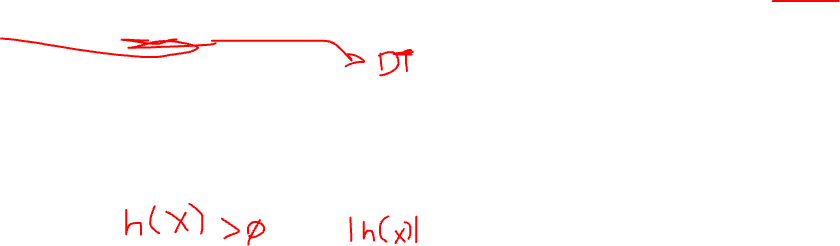 DT
h(x) >φ |h(x)|